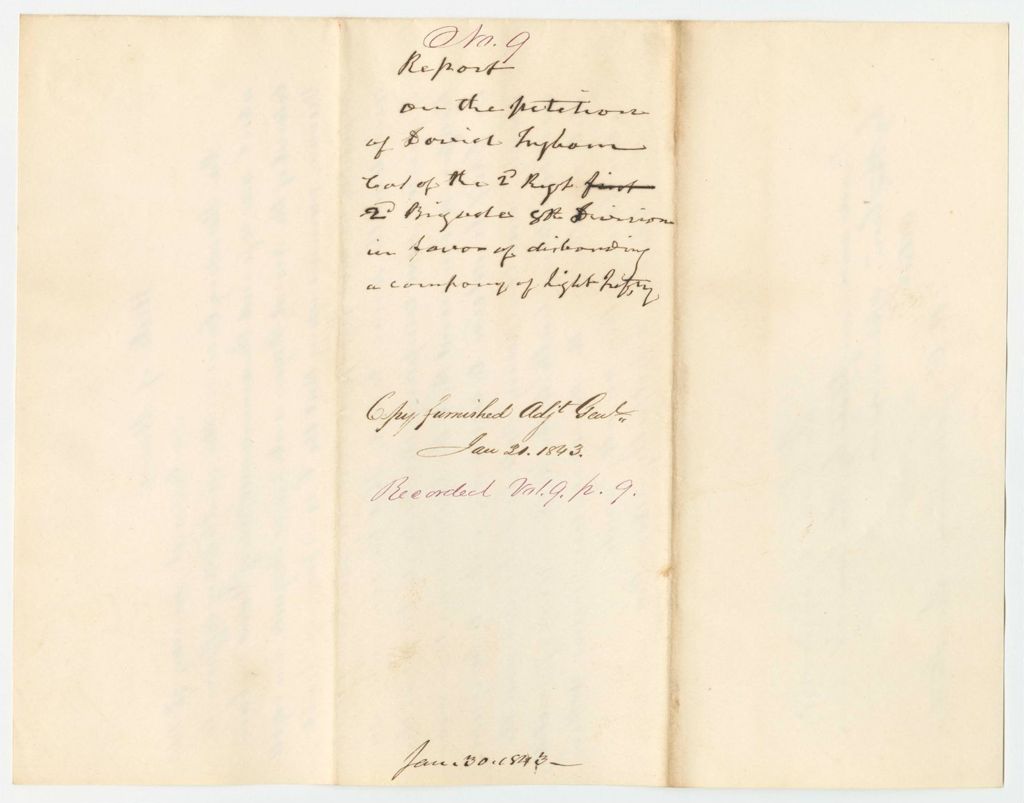 No. 9
Report
on the petition
of David Ingham
Col of the 2d Regt first
2d Brigade 8th Division
in favor of disbanding
a company of Light Inftry
Copy furnished Adjt Genl.
Jan 31. 1843.
Recorded Vol. 9. p. 9.
Jan. 30. 1843